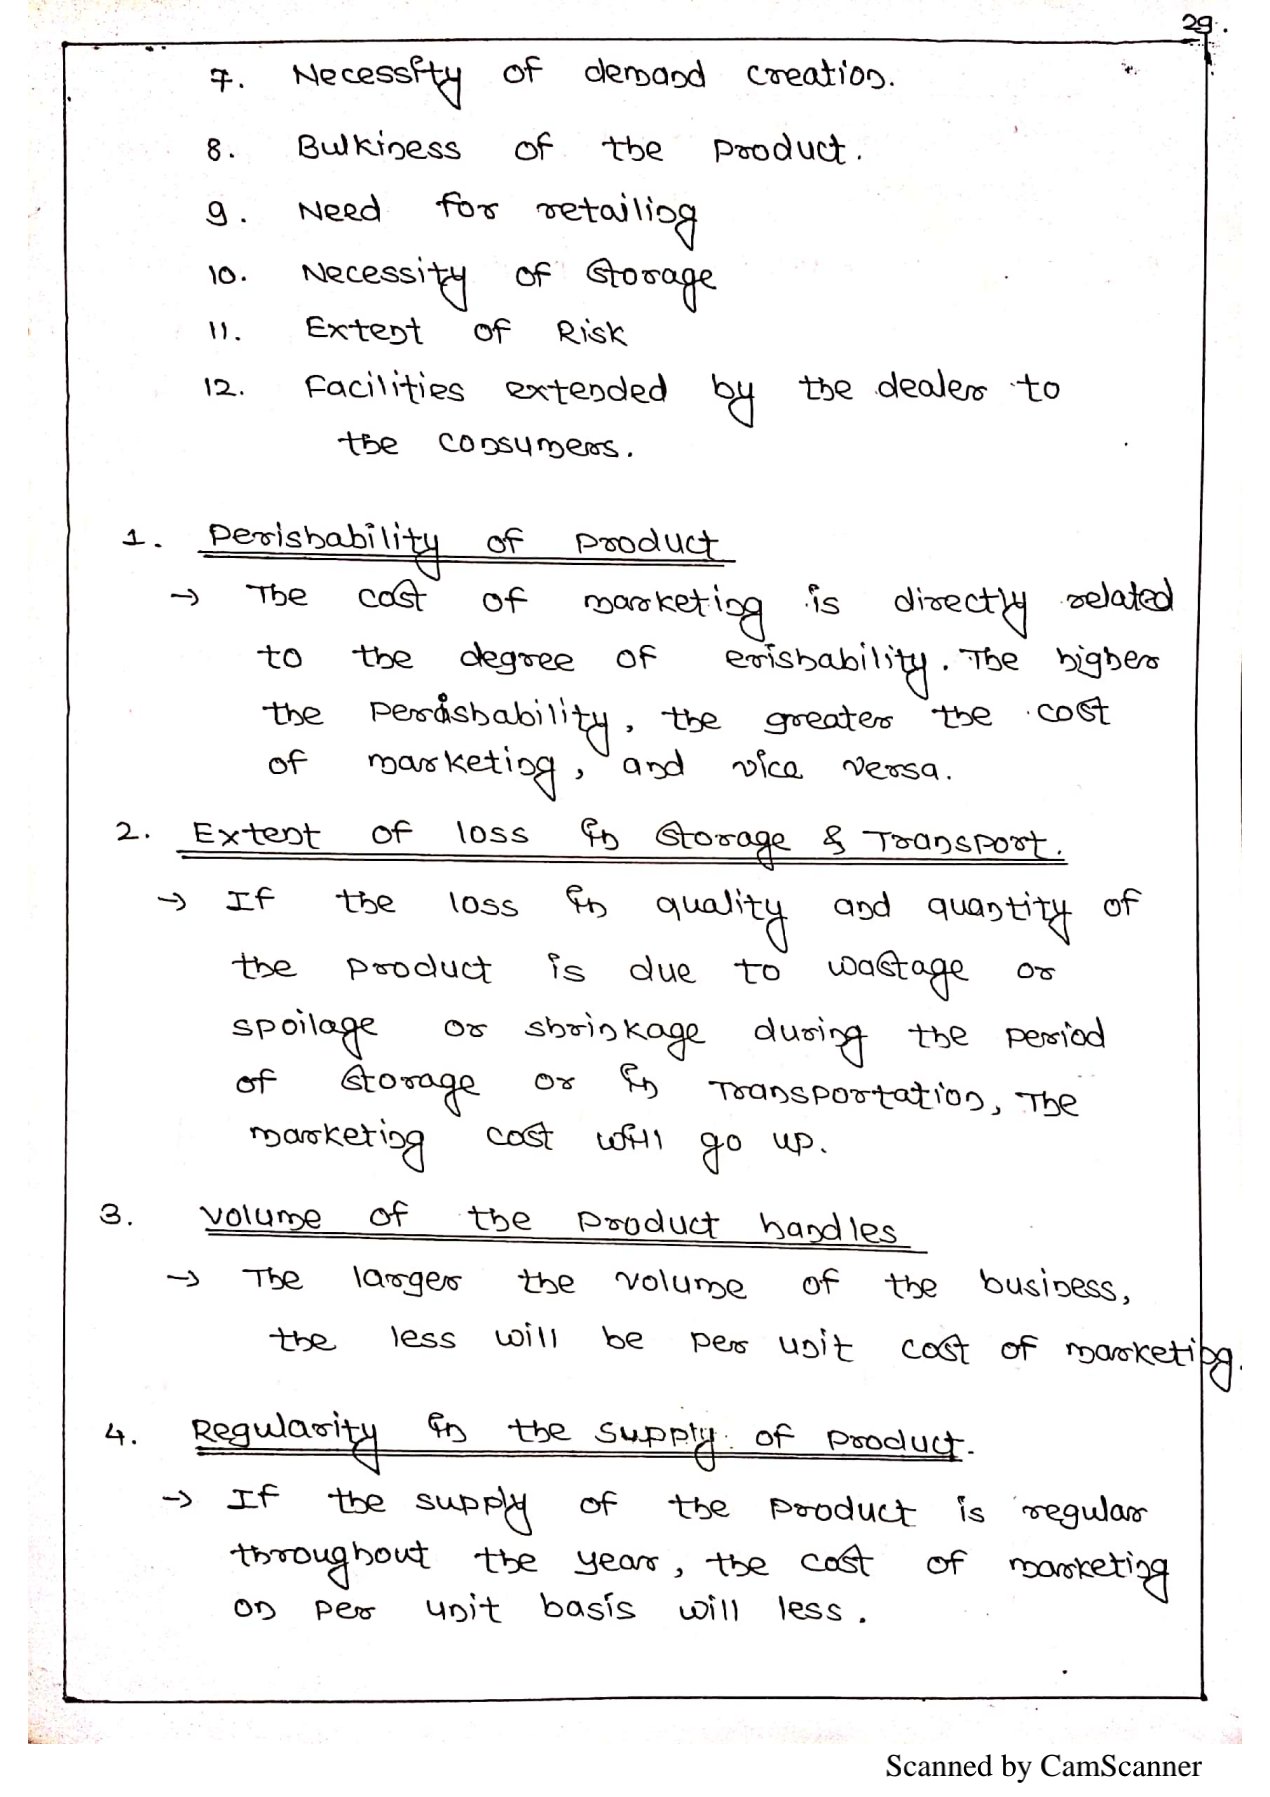 29.
7. Necessity of demand creation.
8. Bulkiness of the product.
9. Need for retailing
10. Necessity of storage
11. Extent of Risk
12. Facilities extended by the dealer to
the consumers.
1. Perishability of product
→ The cost of marketing is directly related
to the degree of erishability. The higher
the perishability, the greater the cost
of marketing, and vica versa.
2. Extent of loss in storage & Transport.
→ If the loss in quality and quantity of
the product is due to wastage or
spoilage or shrinkage during the period
of storage or in Transportation, The
marketing cost will go up.
3. Volume of the product handles
→ The larger the volume of the business,
the less will be per unit cost of marketing.
4. Regularity in the supply of product.
→ If the supply of the product is regular
throughout the year, the cost of marketing
on per unit basis will less.
Scanned by CamScanner